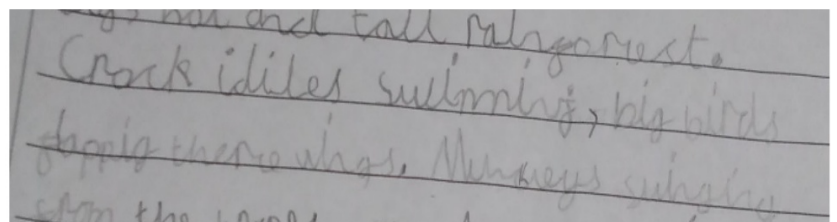 hot and tall rainforest.
Crock idiles swimming, big birds
flappig there wings. Munkeys swinging
from the